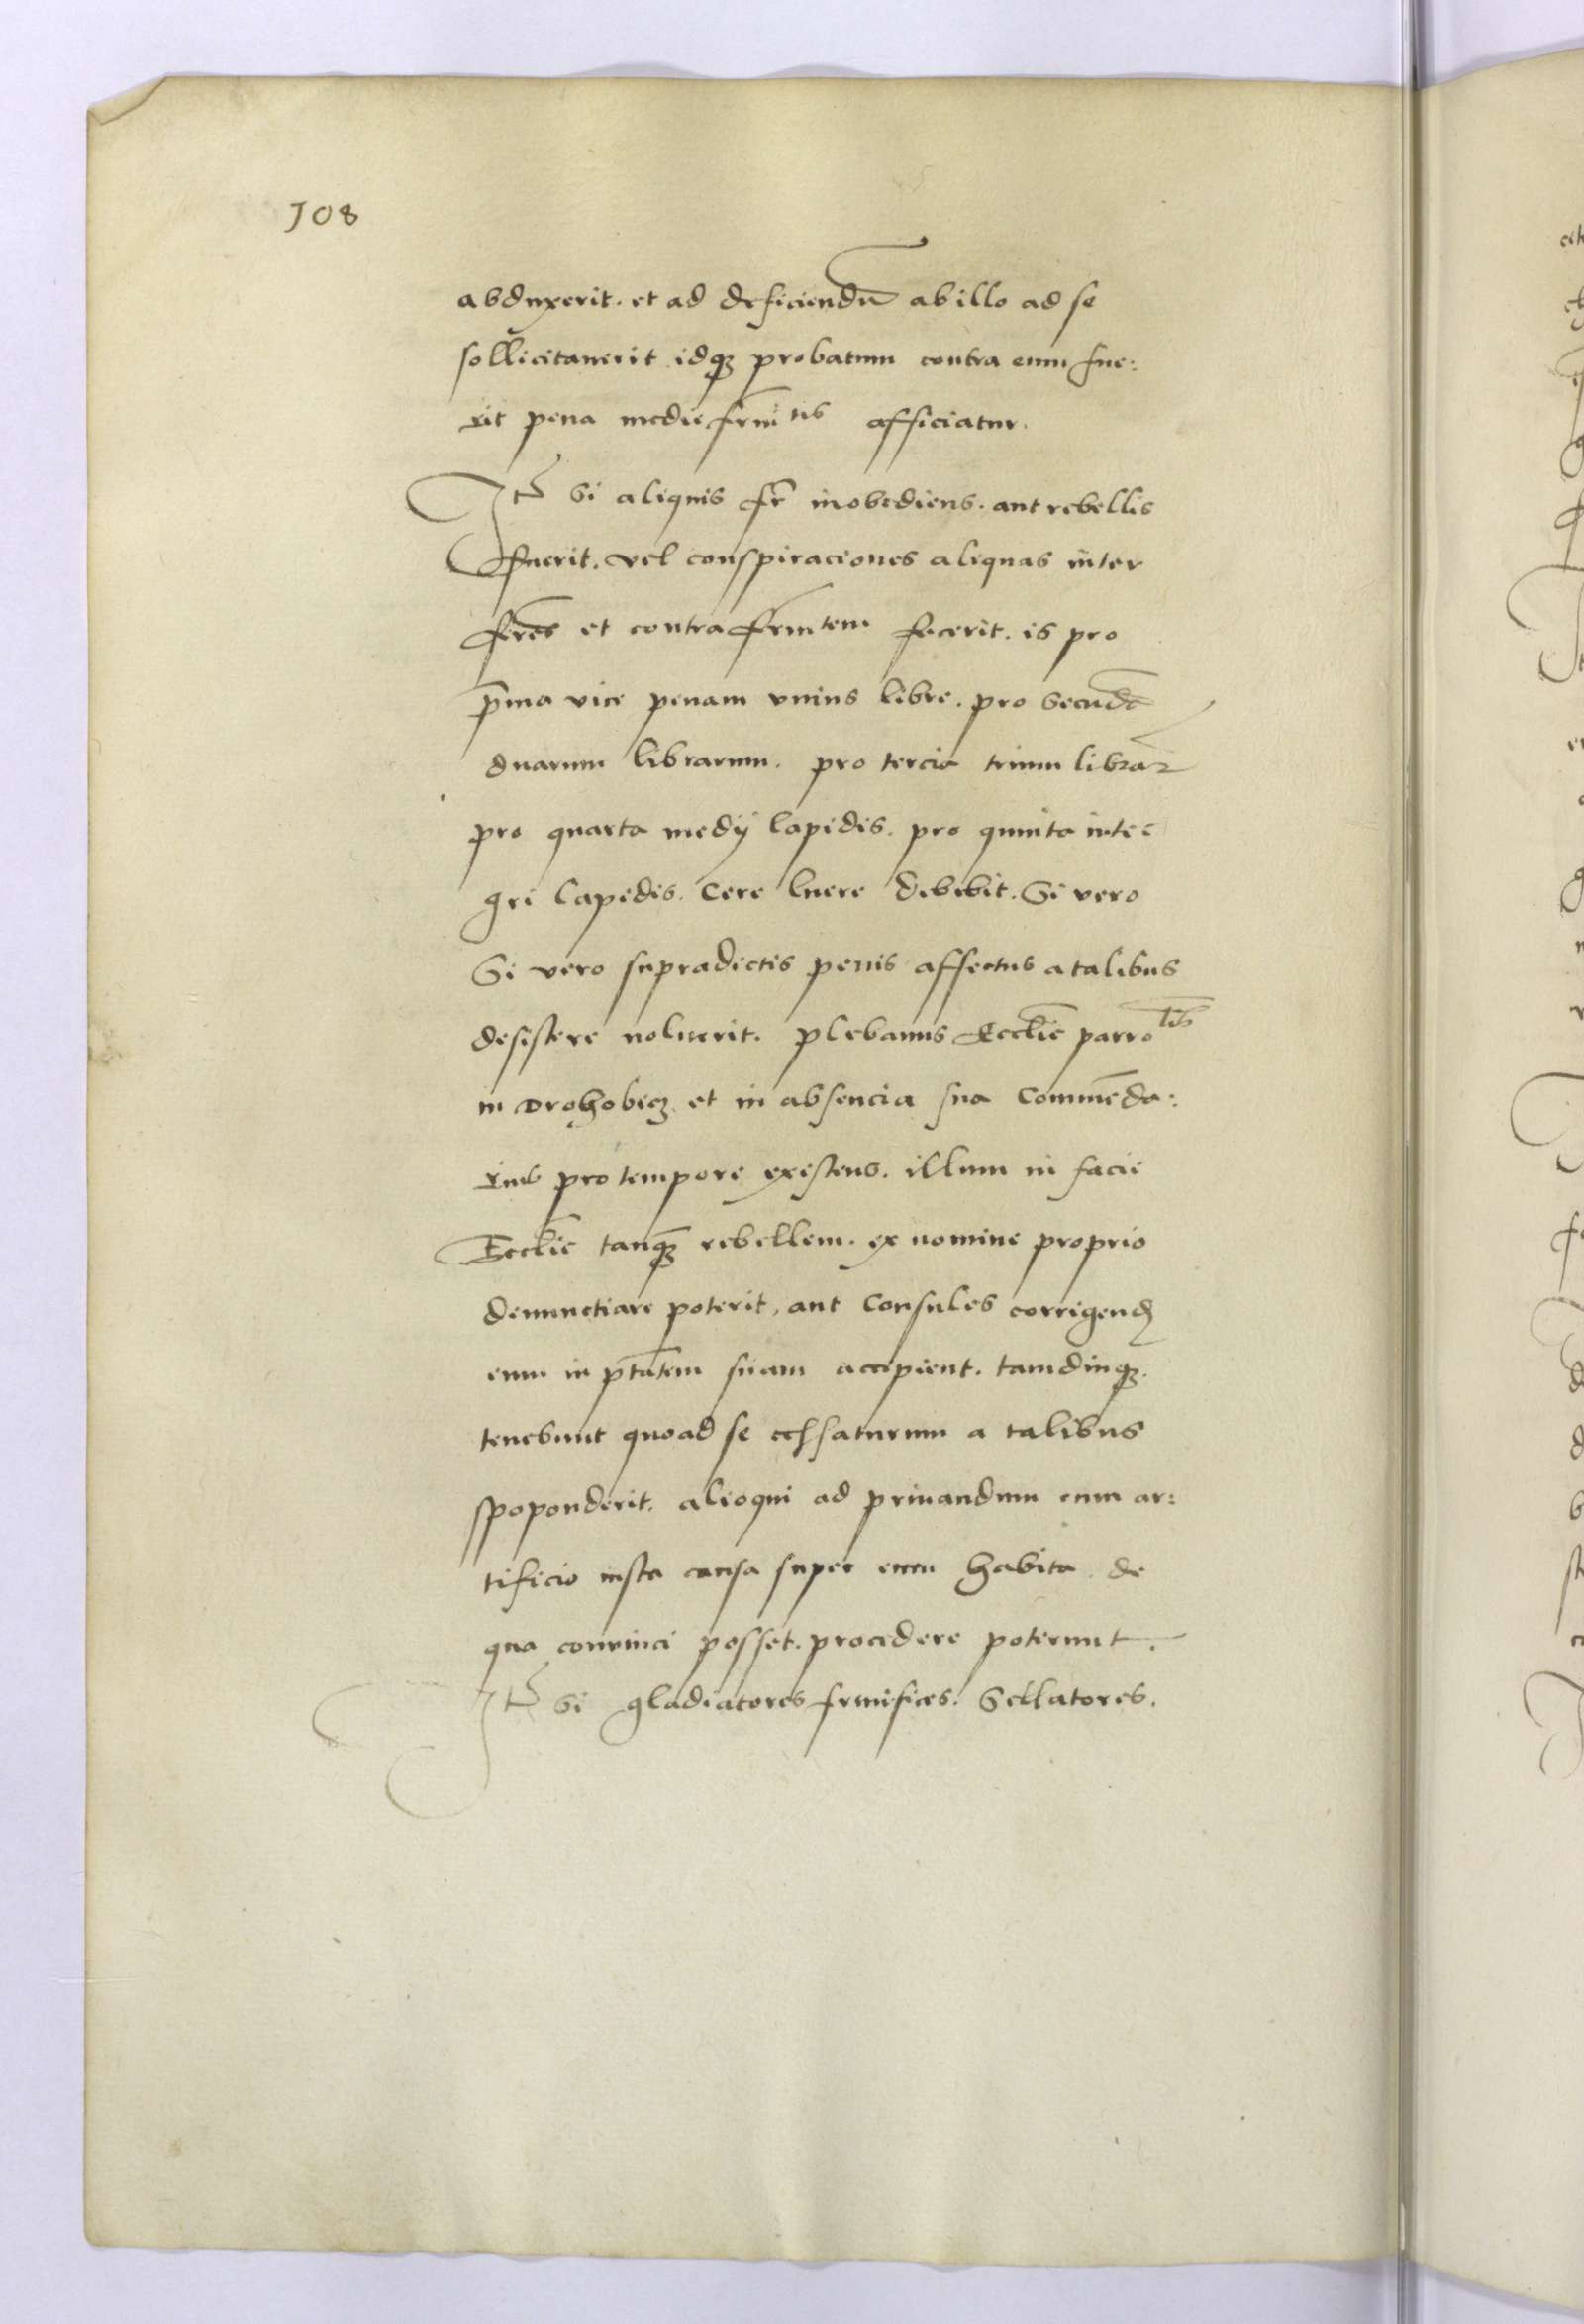 108
abduxerit. et ad deficiendū ab illo ad se
sollicitauerit idqȝ probatum contra eum fue:
rit pena medie frnitis afficiatur.
Itē Si aliquis fr̄ inobediens. aut rebellis
fuerit. vel conspiraciones aliquas inter
frēs et contra frnitem fecerit. is pro
p̄ma vice penam vnius libre. pro Secūda
duarum librarum. pro tercia trium librar
pro quarta medÿ lapidis. pro quinta inte=
gri lapidis. Cere luere debebit. Si vero
Si vero supradictis penis affectus a talibus
desistere noluerit. plebanus Ecclīe parrolis
in Drohobicȝ et in absencia sua Commēda:
rius pro tempore existens. illum in facie
Ecclīe tanqȝ rebellem. ex nomine proprio
denunctiare poterit, aut Consules corrigend
eum in ptātem suam accipient. tamdiuqȝ.
tenebunt quoad se cessaturum a talibus
spoponderit. alioqui ad priuandum eum ar:
tificio iusta causa super eum habita. de
qua conuinci posset. procedere poterunt.
Itē Si gladiatores frenifices. Sellatores.